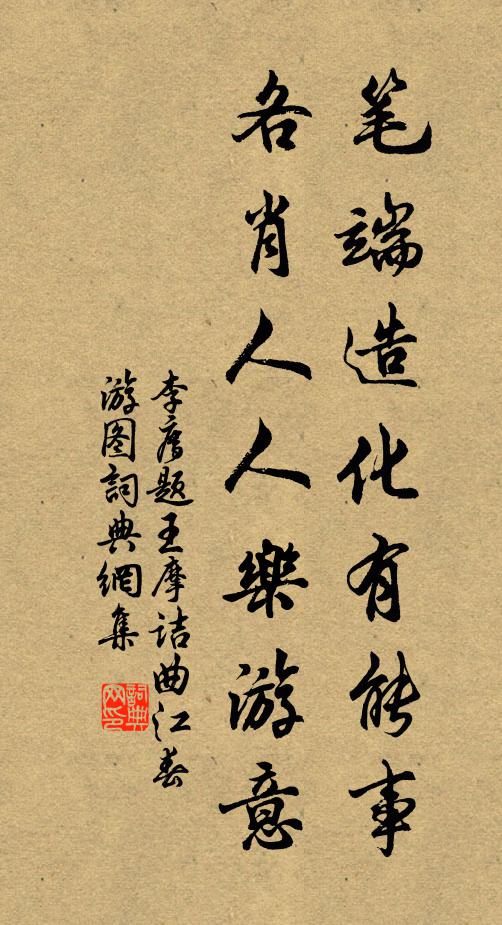 笔端造化有能事
各肖人人樂游意
李廌题王摩诘曲江春
游图詞典網集
詞典
网印